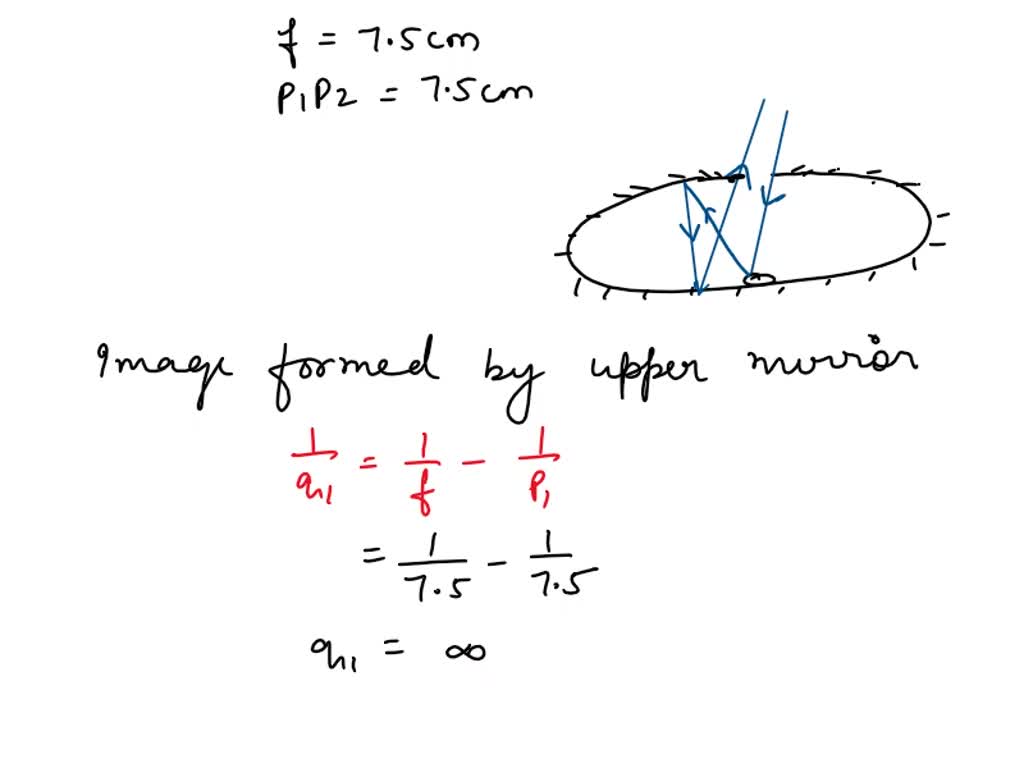 f = 7.5cm
P1P2 = 7.5cm
Image formed by upper mirror
1/q1 = 1/f - 1/P1
= 1/7.5 - 1/7.5
q1 = ∞